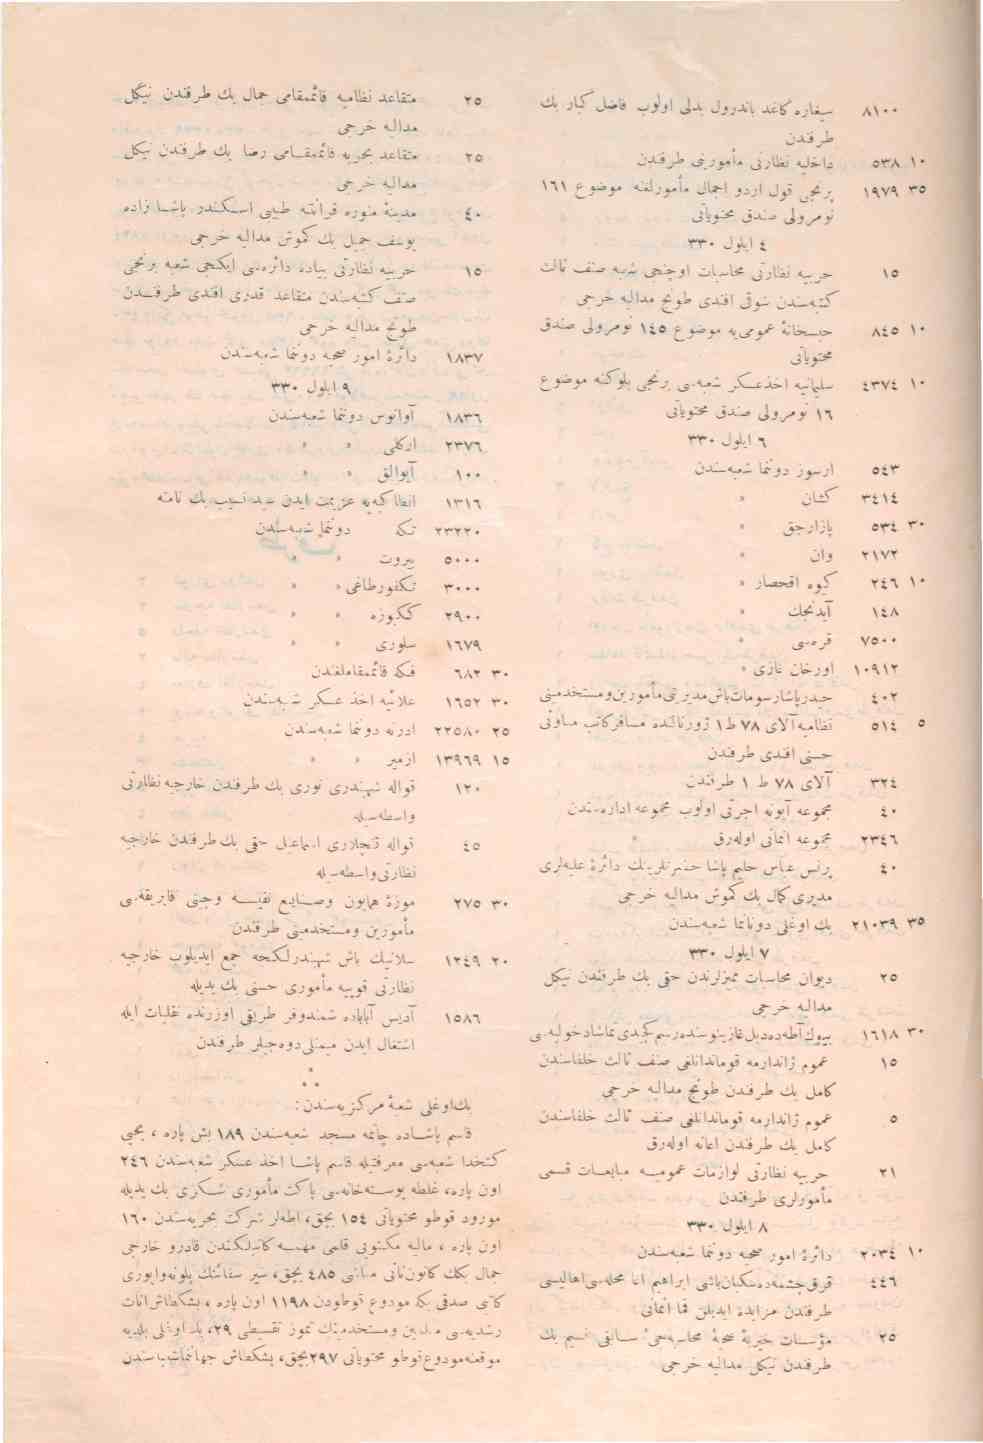 ٨١٠٠ سیغاره کاغد باندرول بدلی اولوب فاضل کبار بك
طرفندن
١٠ ٥٣٨ داخلیه نظارتی مأمورینی طرفندن
٣٥ ١٩٧٩ برنجی قول اردو اجمال مأمورلغنه موضوع ١٦١
نومرولی صندق محتویاتی
٤ ایلول ٣٣٠
١٥ حربیه نظارتی محاسبات اوچنجی شعبه صنف ثالث
كتبه‌سندن شوقی افندی طونج مدالیه خرجی
١٠ ٨٤٥ حبسخانهٔ عمومی‌یه موضوع ١٤٥ نومرولی صندق
محتویاتی
١٠ ٤٣٧٤ سلیمانیه اخذعسکر شعبه‌سی برنجی بلوکنه موضوع
١٦ نومرولی صندق محتویاتی
٦ ایلول ٣٣٠
٥٤٣ ارسوز دوننما شعبه‌سندن
٣٤١٤ کشان »
٣٠ ٥٣٤ پازارجق »
٢١٧٢ وان »
١٠ ٢٤٦ کیوه اقحصار »
١٤٨ آیدنجك »
٧٥٠٠ قره‌سی »
١٠٩١٢ اورخان غازی »
٤٠٢ حیدرپاشارسومات‌باش‌مدیریتی‌مأمورین‌ومستخدمینی
٥ ٥١٤ نظامیه‌آلای ٧٨ ط١ ژورنالنده مسافرکاتب معاونی
حسنی افندی طرفندن
٣٢٤ آلای ٧٨ ط ١ طرفندن
٤٠ مجموعه آبونه اجرتی اولوب مجموعه اداره‌سندن
٢٣٤٦ مجموعه اثمانی اوله‌رق »
٤٠ پرنس عباس حلیم پاشا حضرتلرینك دائرهٔ علیه‌لری
مدیری کمال بك کموش مدالیه خرجی
٣٥ ٢١٠٣٩ بك اوغلی دوناغا شعبه‌سندن
٧ ایلول ٣٣٠
٢٥ دیوان محاسبات ممیزلرندن حقی بك طرفندن نیکل
مدالیه خرجی
٣٠ ١٦١٨ بیوك‌آطه‌ده‌دیل‌غازینوسنده‌رسم‌کچیدی‌تماشادخولیه‌سی
١٥ عموم ژاندارمه قوماندانلغی صنف ثالث خلفاسندن
کامل بك طرفندن طونج مدالیه خرجی
٥ عموم ژاندارمه قوماندانلغی صنف ثالث خلفاسندن
کامل بك طرفندن اعانه اوله‌رق
٢١ حربیه نظارتی لوازمات عمومیه مبایعات قسمی
مأمورلری طرفندن
٨ ایلول ٣٣٠
١٠ ٢٠٣٤ دائرهٔ امور صحیه دوننما شعبه‌سندن
٤٤٦ قرق‌چشمه‌ده‌سکبان‌باشی ابراهیم اغا محله‌سی‌اهالیسی
طرفندن مزایده ایدیلن قما اثمانی
٢٥ مؤسسات خیریهٔ صحیهٔ محاسبه‌جیٔ سابقی نسیم بك
طرفندن نیکل مدالیه خرجی
٢٥ متقاعد نظامیه قائممقامی جمال بك طرفندن نیکل
مدالیه خرجی
٢٥ متقاعد بحریه قائممقامی رضا بك طرفندن نیکل
مدالیه خرجی
٤٠ مدینهٔ منوره قرانتنه طبیبی اسکندر پاشا زاده
یوسف جمیل بك کموش مدالیه خرجی
١٥ حربیه نظارتی پیاده دائره‌سی ایکنجی شعبه برنجی
صنف كتبه‌سندن متقاعد قدری افندی طرفندن
طونج مدالیه خرجی
١٨٣٧ دائرهٔ امور صحیه دوننما شعبه‌سندن
٩ ایلول ٣٣٠
١٨٣٦ آوانوس دوننما شعبه‌سندن
٢٣٧٦ ارکلی » »
١٠٠ آیوالق » »
١٣١٦ انطاکیه‌یه عزیمت ایدن سید نسیب بك نامنه
٢٣٢٢٠ تکه دوننما شعبه‌سندن
٥٠٠٠ بیروت » »
٣٠٠٠ تکفورطاغی » »
٢٩٠٠ ککبوزه » »
١٦٧٩ سلوری » »
٣٠ ٦٨٢ فکه قائممقاملغندن
٣٠ ١٦٥٢ علائیه اخذ عسکر شعبه‌سندن
٢٥ ٢٢٥٨٠ ادرنه دوننما شعبه‌سندن
١٥ ١٣٩٦٩ ازمیر » »
١٢٠ قواله شهبندری نوری بك طرفندن خارجیه نظارتی
واسطه‌سیله
٤٥ قواله قنچلاری اسماعیل حقی بك طرفندن خارجیه
نظارتی‌واسطه‌سیله
٣٠ ٢٧٥ موزهٔ همایون وصنایع نفیسه وچینی فابریقه‌سی
مأمورین ومستخدمینی طرفندن
٢٠ ١٢٤٩ سلانیك باش شهبندرلکنجه جمع ایدیلوب خارجیه
نظارتی قوپیه مأموری حسنی بك یدیله
١٥٨٦ آدیس آبابا‌ده شمندوفر طریقی اوزرنده نقلیات ایله
اشتغال ایدن میمنلی‌دوه‌جیلر طرفندن
* * *
بك‌اوغلی شعبهٔ مرکزیه‌سندن:
قاسم پاشاده چاتمه مسجد شعبه‌سندن ١٨٩ بش پاره ، یحیی
کتخدا شعبه‌سی معرفتیله قاسم پاشا اخذ عسکر شعبه‌سندن ٢٤٦
اون پاره، غلطه پوسته‌خانه‌سی پاکت مأموری شکری بك یدیله
مورود قوطو محتویاتی ١٥٤ بچق، اطه‌لر شرکت بحریه‌سندن ١٦٠
اون پاره ، مالیه مکتوبی قلمی مهمه کاتبلکندن قادرو خارجی
جمال بکك کانون‌ثانی معاشی ٤٨٥ بچق، سیر سفائنك پلونه‌واپوری
کاتبی صدقی بکه مودوع قوطودن ١١٩٨ اون پاره ، بشکطاش‌اناث
رشدیه‌سی معلمین ومستخدمینك تموز تقسیطی ٢٩، بك اوغلی بلدیه
موقعنه‌مودوع‌قوطو محتویاتی ٢٩٧بچق، بشکطاش جهاننماشعبه‌سندن